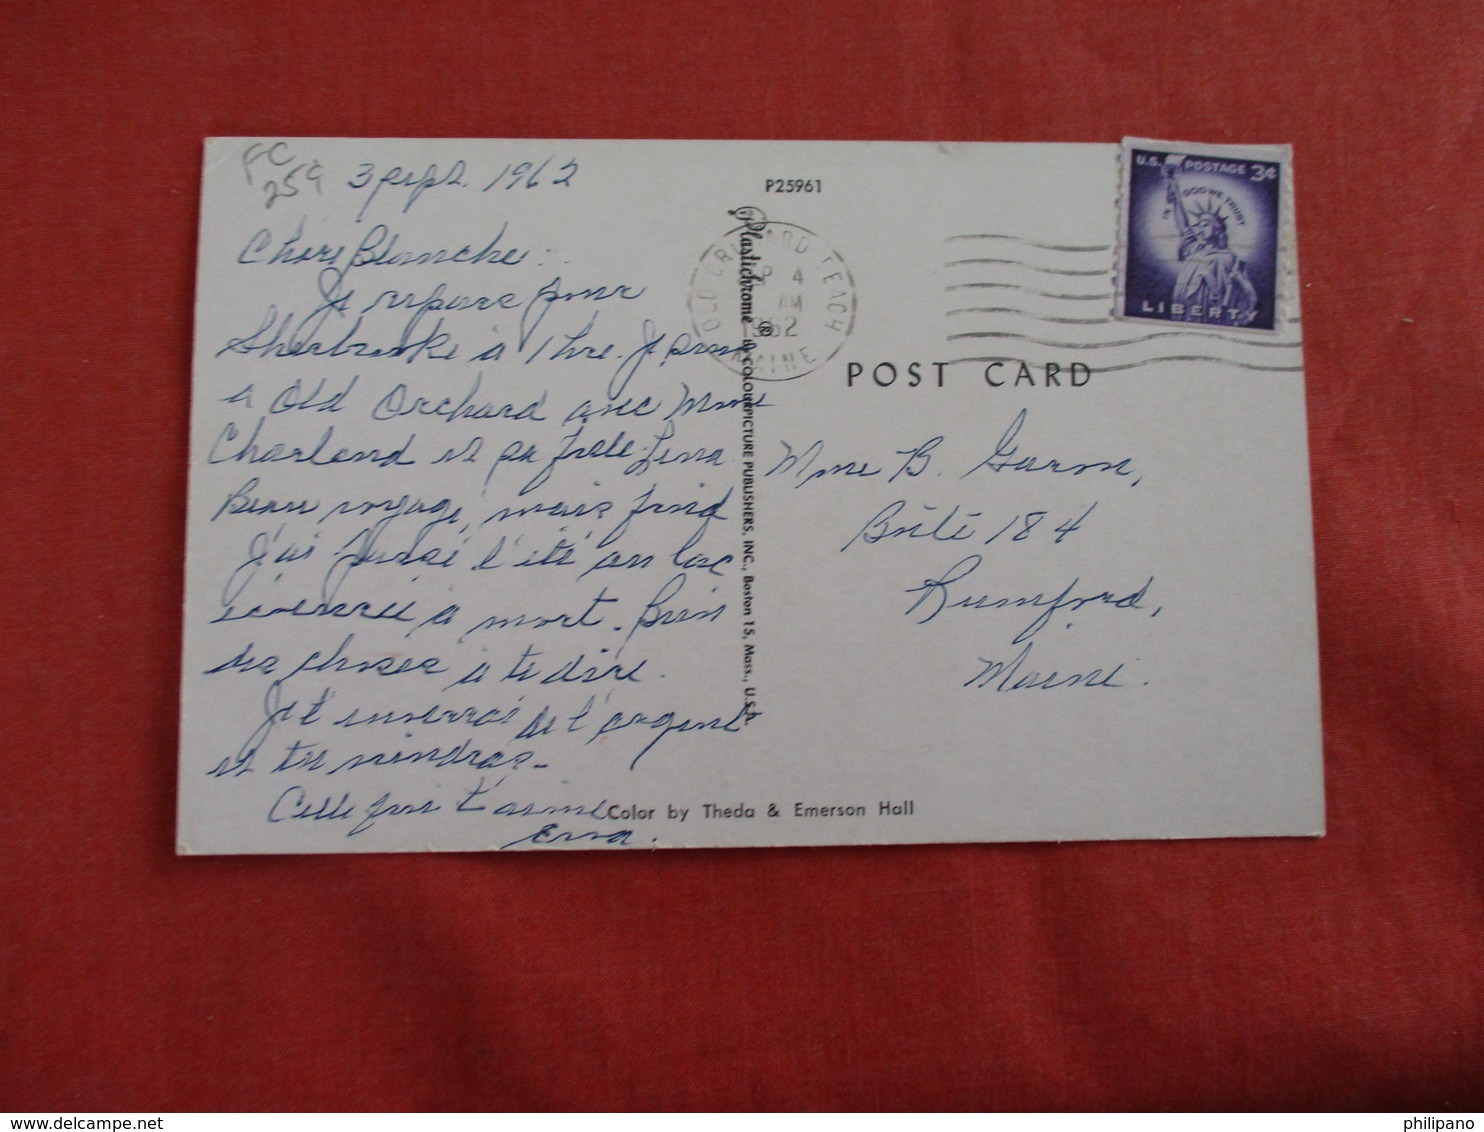 FC
259
3 sept. 1962
Chère Blanche :
Je repars pour
Sherbrooke à 1 hre. Je suis
à Old Orchard avec Mme
Charland et sa fille Lena
Beau voyage, mais froid
J'ai passé l'été au lac
à mort. Bien
des choses à te dire.
Je t'enverrai de l'argent
et tu viendras-
Celle qui t'aime
Erna.
P25961
Plastichrome ® by COLOURPICTURE PUBLISHERS, INC., Boston 15, Mass., U.S.A.
OLD ORCHARD BEACH
SEP 4
AM
1962
MAINE
U.S. POSTAGE 3¢
IN GOD WE TRUST
LIBERTY
POST CARD
Mme B. Garon,
Boîte 184
Rumford,
Maine.
Color by Theda & Emerson Hall
philipano